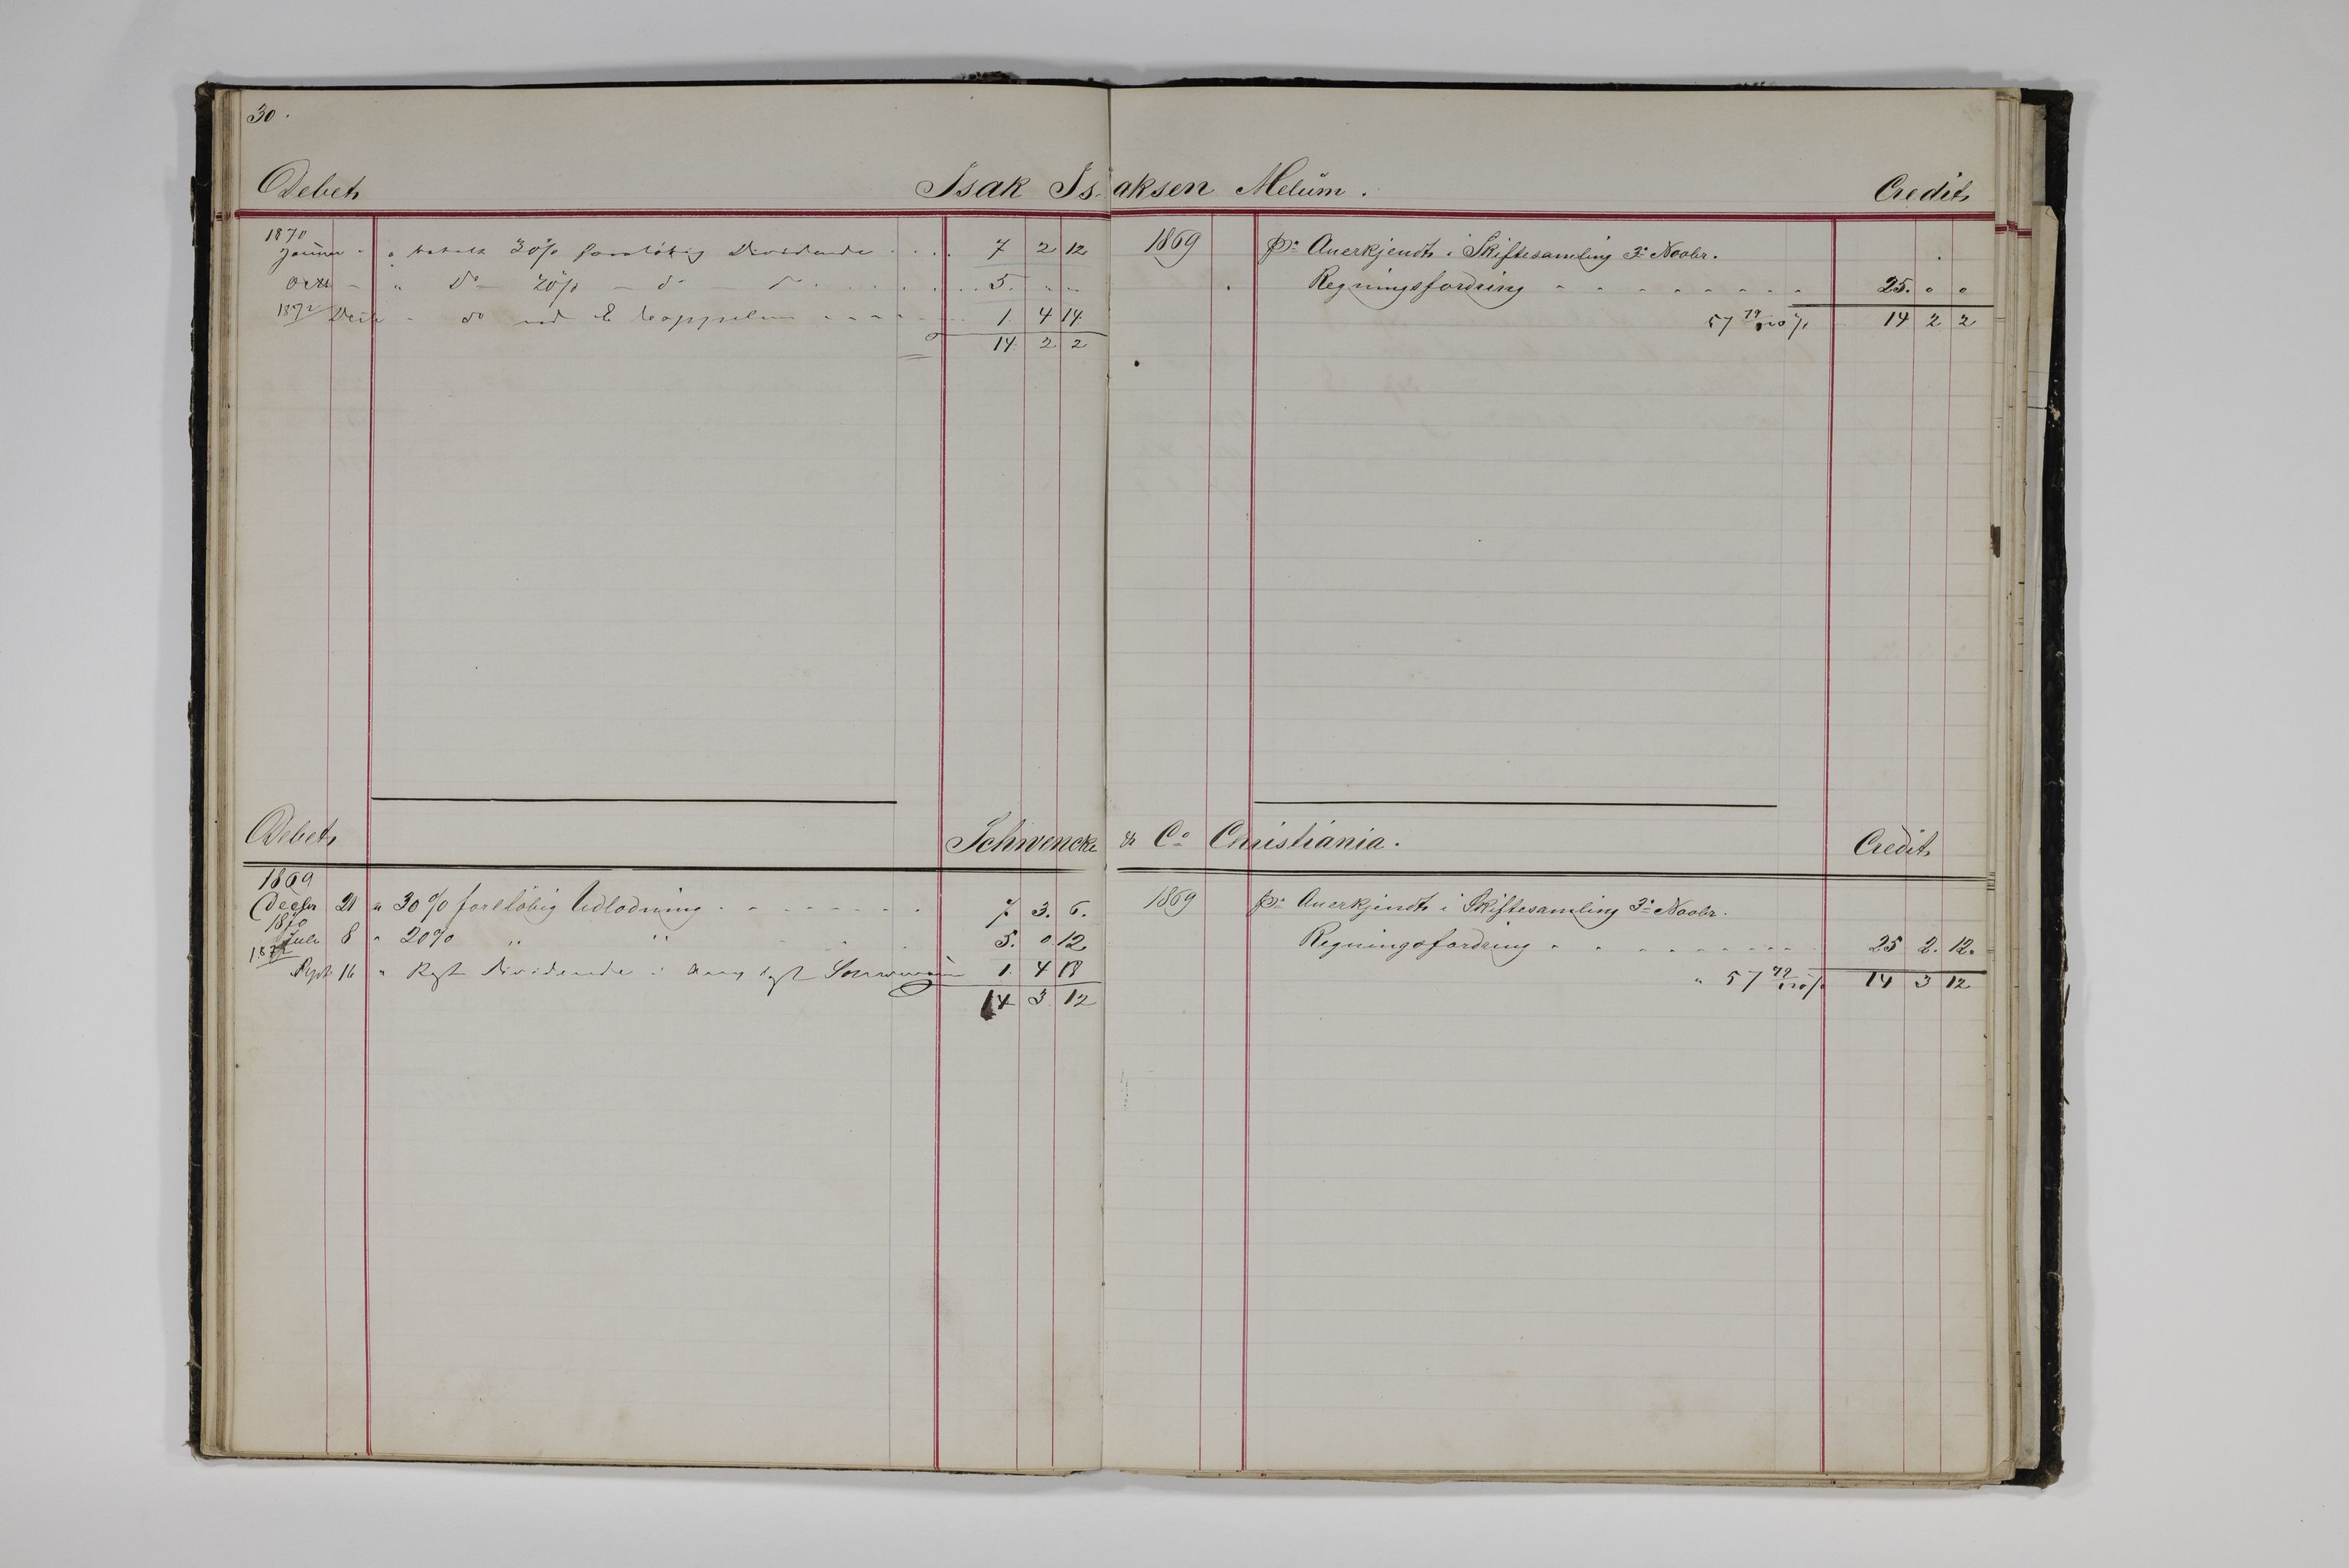 30.
Debet Isak Isaksen Melum. Credit
1870
Januar " betalt 30% foreløbig Dividende 7 2 12
Octr " do 20% do 5. " "
1872 Decbr do ved E 1. 4 14
14. 2 2
1869 pr Anerkjendt i Skiftesamling 3die Novbr.
Regningsfordring 25. " "
57 79/120 % 14 2 2
Debet Schwencke & Co Christiania. Credit
1869
Decbr 21 " 30% foreløbig Udlodning 7. 3. 6.
1870
Juli 8 " 20% " " 5. 0. 12
1872
Septr 16 " Dividende 1. 4 18
14 3 12
1869 pr Anerkjendt i Skiftesamling 3die Novbr.
Regningsfordring 25 2. 12.
" 57 79/120 % 14 3 12